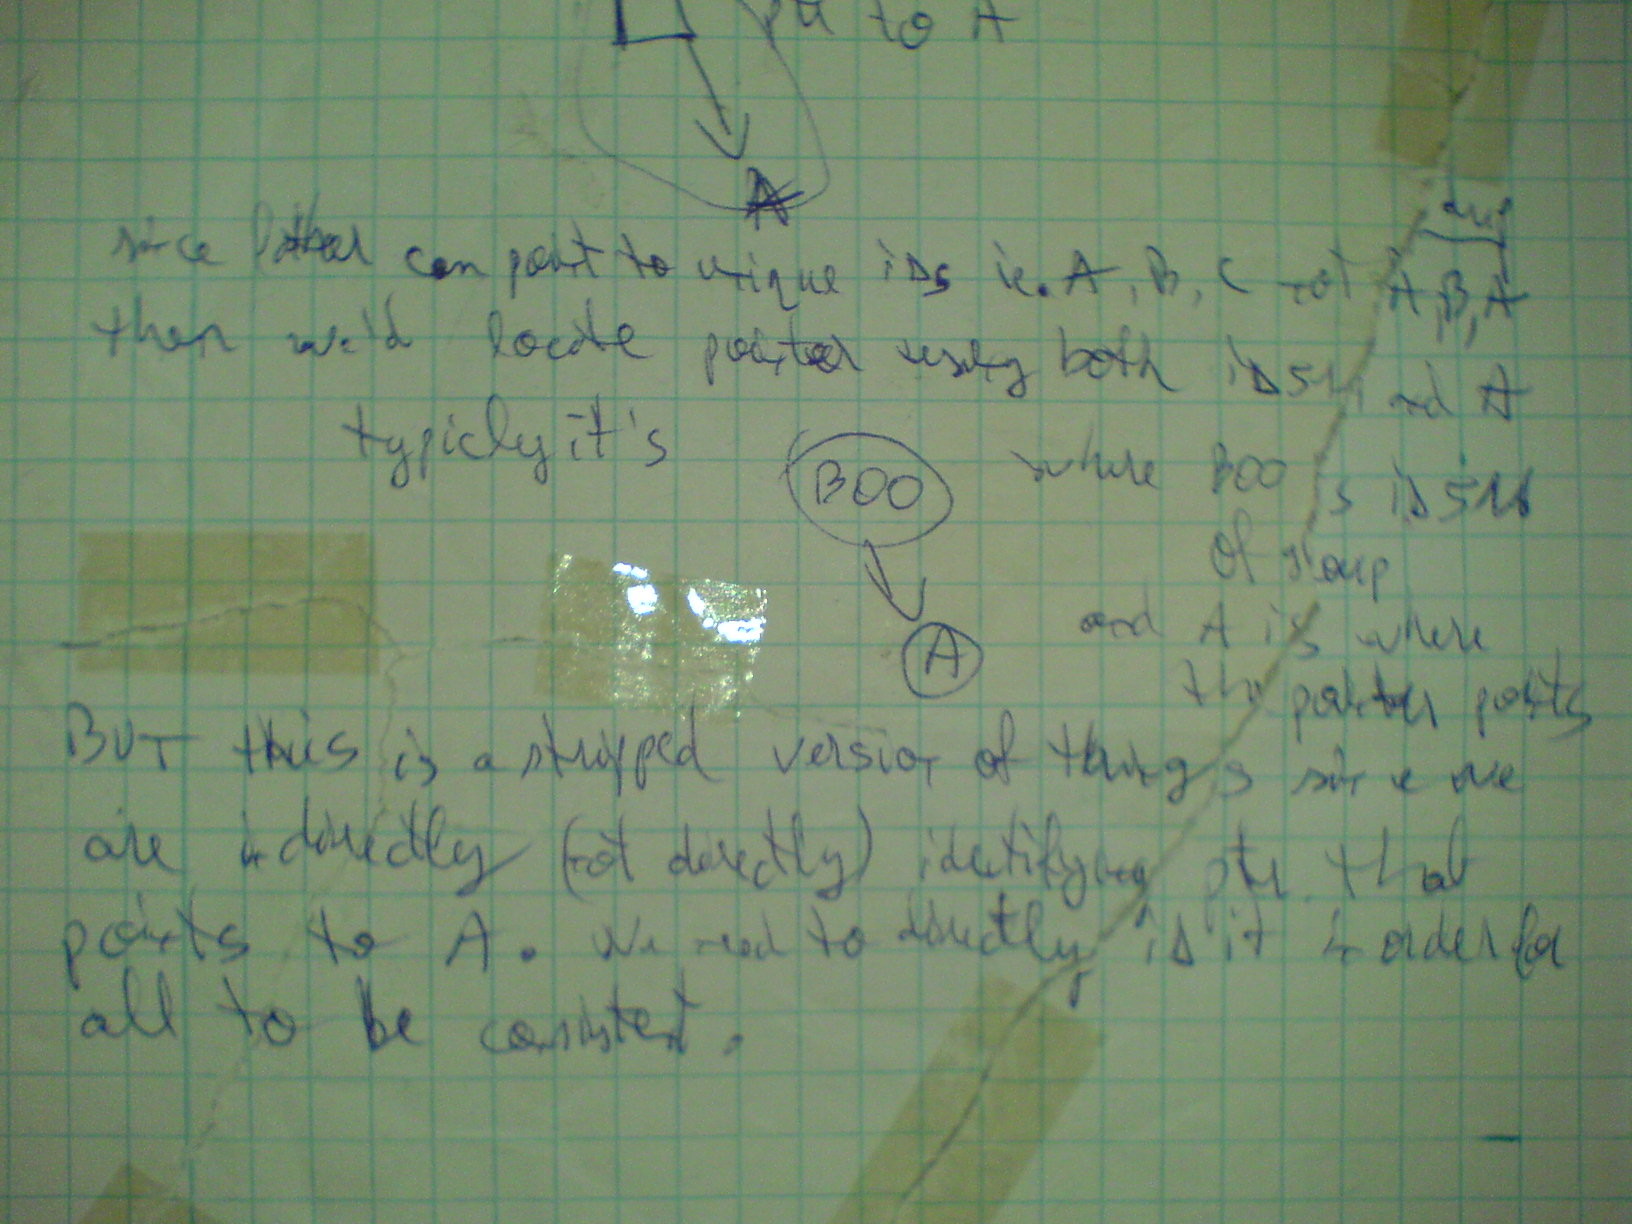 ptr to A
A
dup
since can point to unique IDs ie. A, B, C not A, B, A
then we'd locate pointer using both IDSM and A
typicly it's
BOO
where BOO is IDSM
of group
A
and A is where
the pointer points
BUT this is a stripped version of things since we
are indirectly (not directly) identifying ptr that
points to A. We need to directly ID it in order for
all to be consistent.